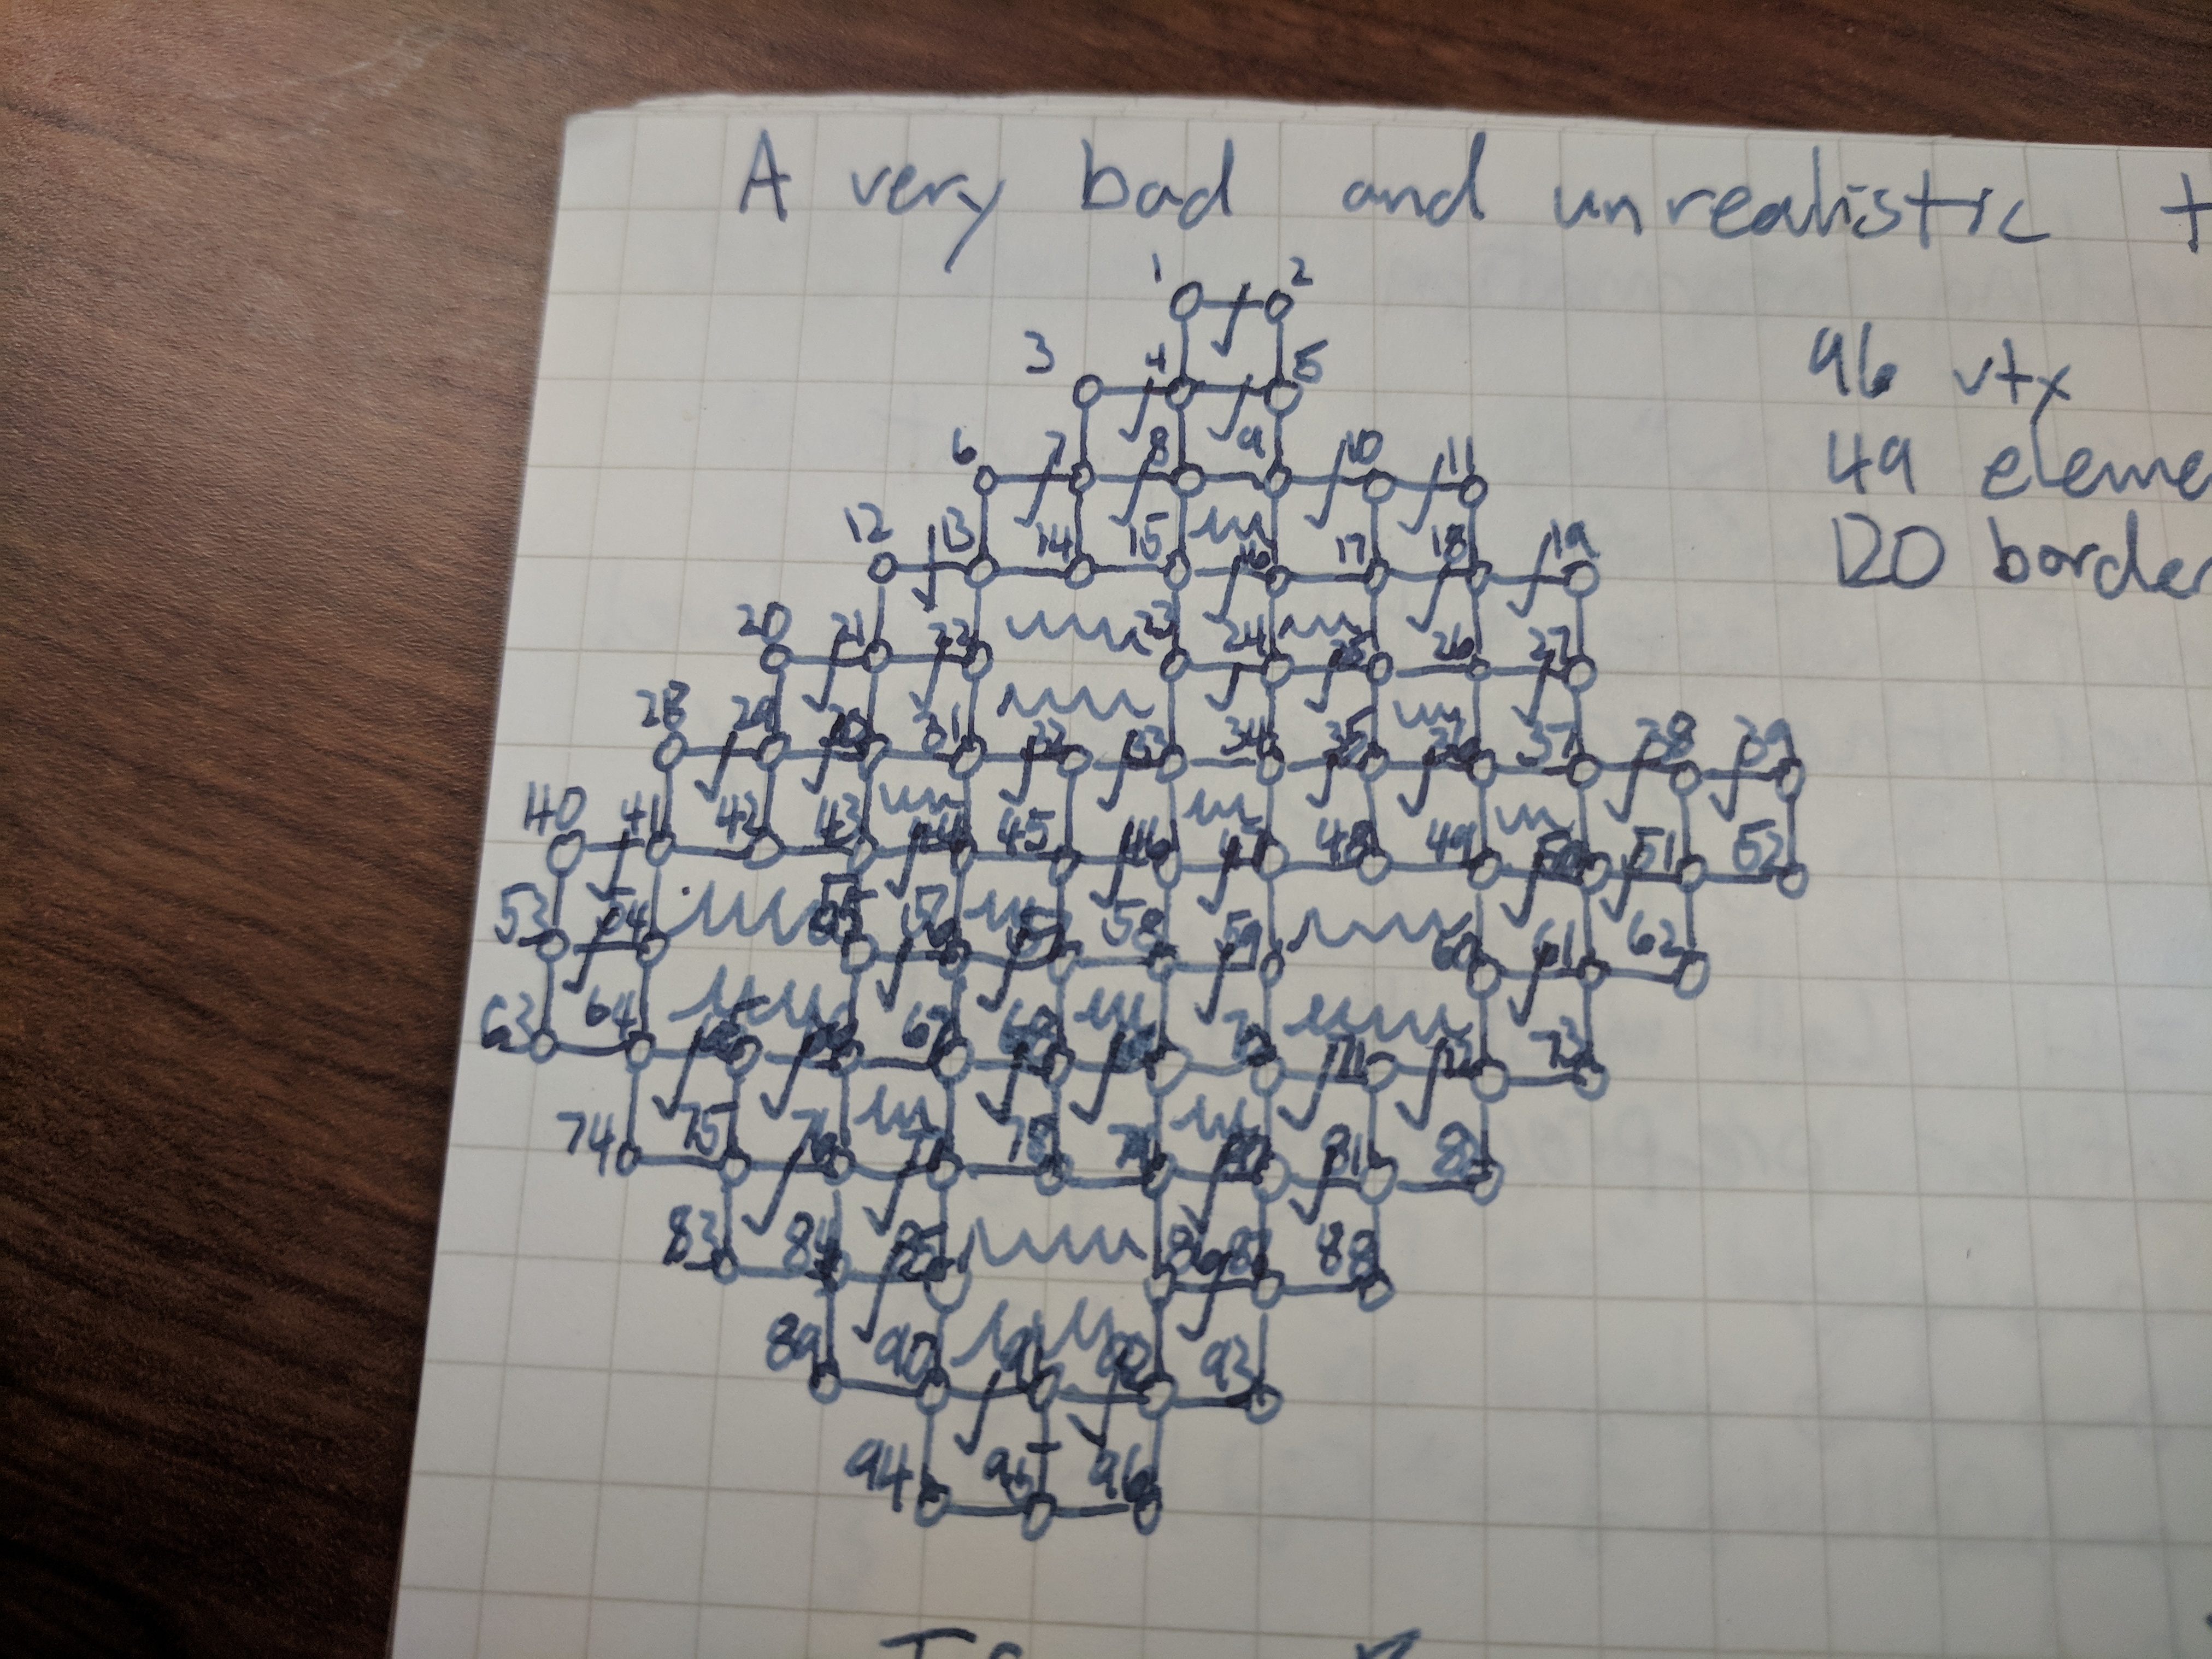 A very bad and unrealistic
1 2
96 vtx
3 4 5
49 eleme
6 7 8 9 10 11
120 border
12 13 14 15 16 17 18 19
20 21 22 23 24 25 26 27
28 29 30 31 32 33 34 35 36 37 38 39
40 41 42 43 44 45 46 47 48 49 50 51 52
53 54 55 56 57 58 59 60 61 62
63 64 65 66 67 68 69 70 71 72 73
74 75 76 77 78 79 80 81 82
83 84 85 86 87 88
89 90 91 92 93
94 95 96